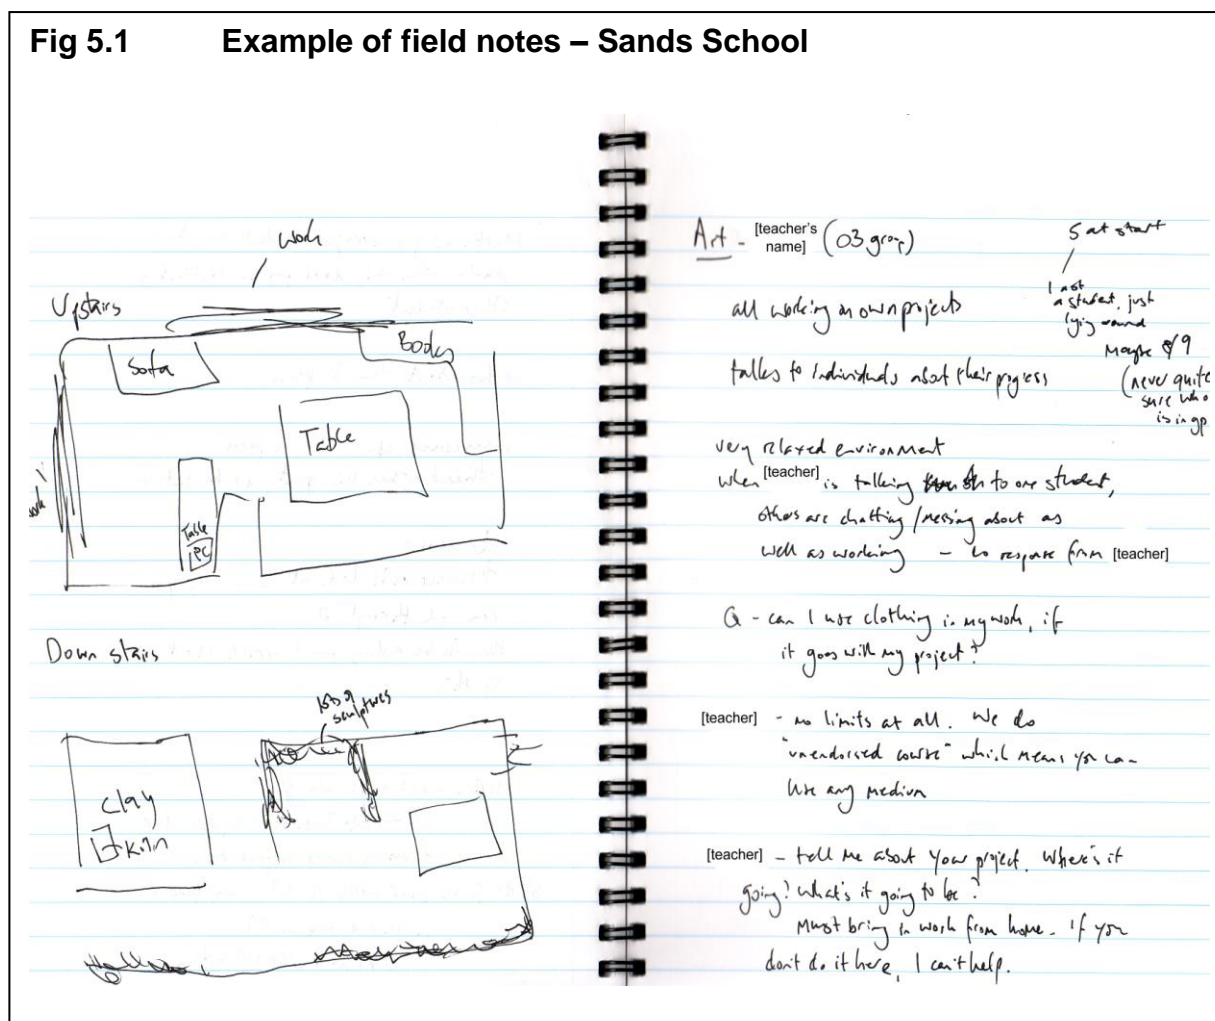 Fig 5.1 Example of field notes – Sands School
work
Upstairs
Sofa
Books
Table
work
Table
PC
Down stairs
lots of
sculptures
clay
kiln
Art - [teacher's name] (O3 group)
5 at start
1 not
a student, just
lying around
Maybe 8/9
(never quite
sure who
is in gp
all working on own projects
talks to individuals about their progress
very relaxed environment
when [teacher] is talking to one student,
others are chatting/messing about as
well as working - no response from [teacher]
Q - can I use clothing in my work, if
it goes with my project?
[teacher] - no limits at all. We do
"unendorsed course" which means you can
use any medium
[teacher] - tell me about your project. Where's it
going? What's it going to be?
Must bring in work from home. If you
don't do it here, I can't help.